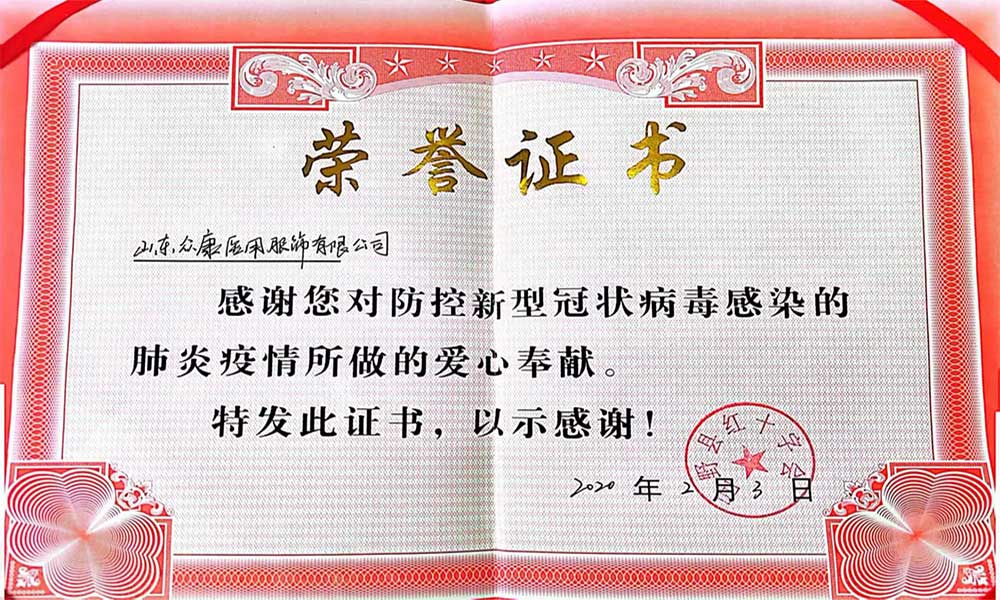 荣誉证书
山东众康医用服饰有限公司
感谢您对防控新型冠状病毒感染的
肺炎疫情所做的爱心奉献。
特发此证书，以示感谢！
野县红十字会
2020年2月3日